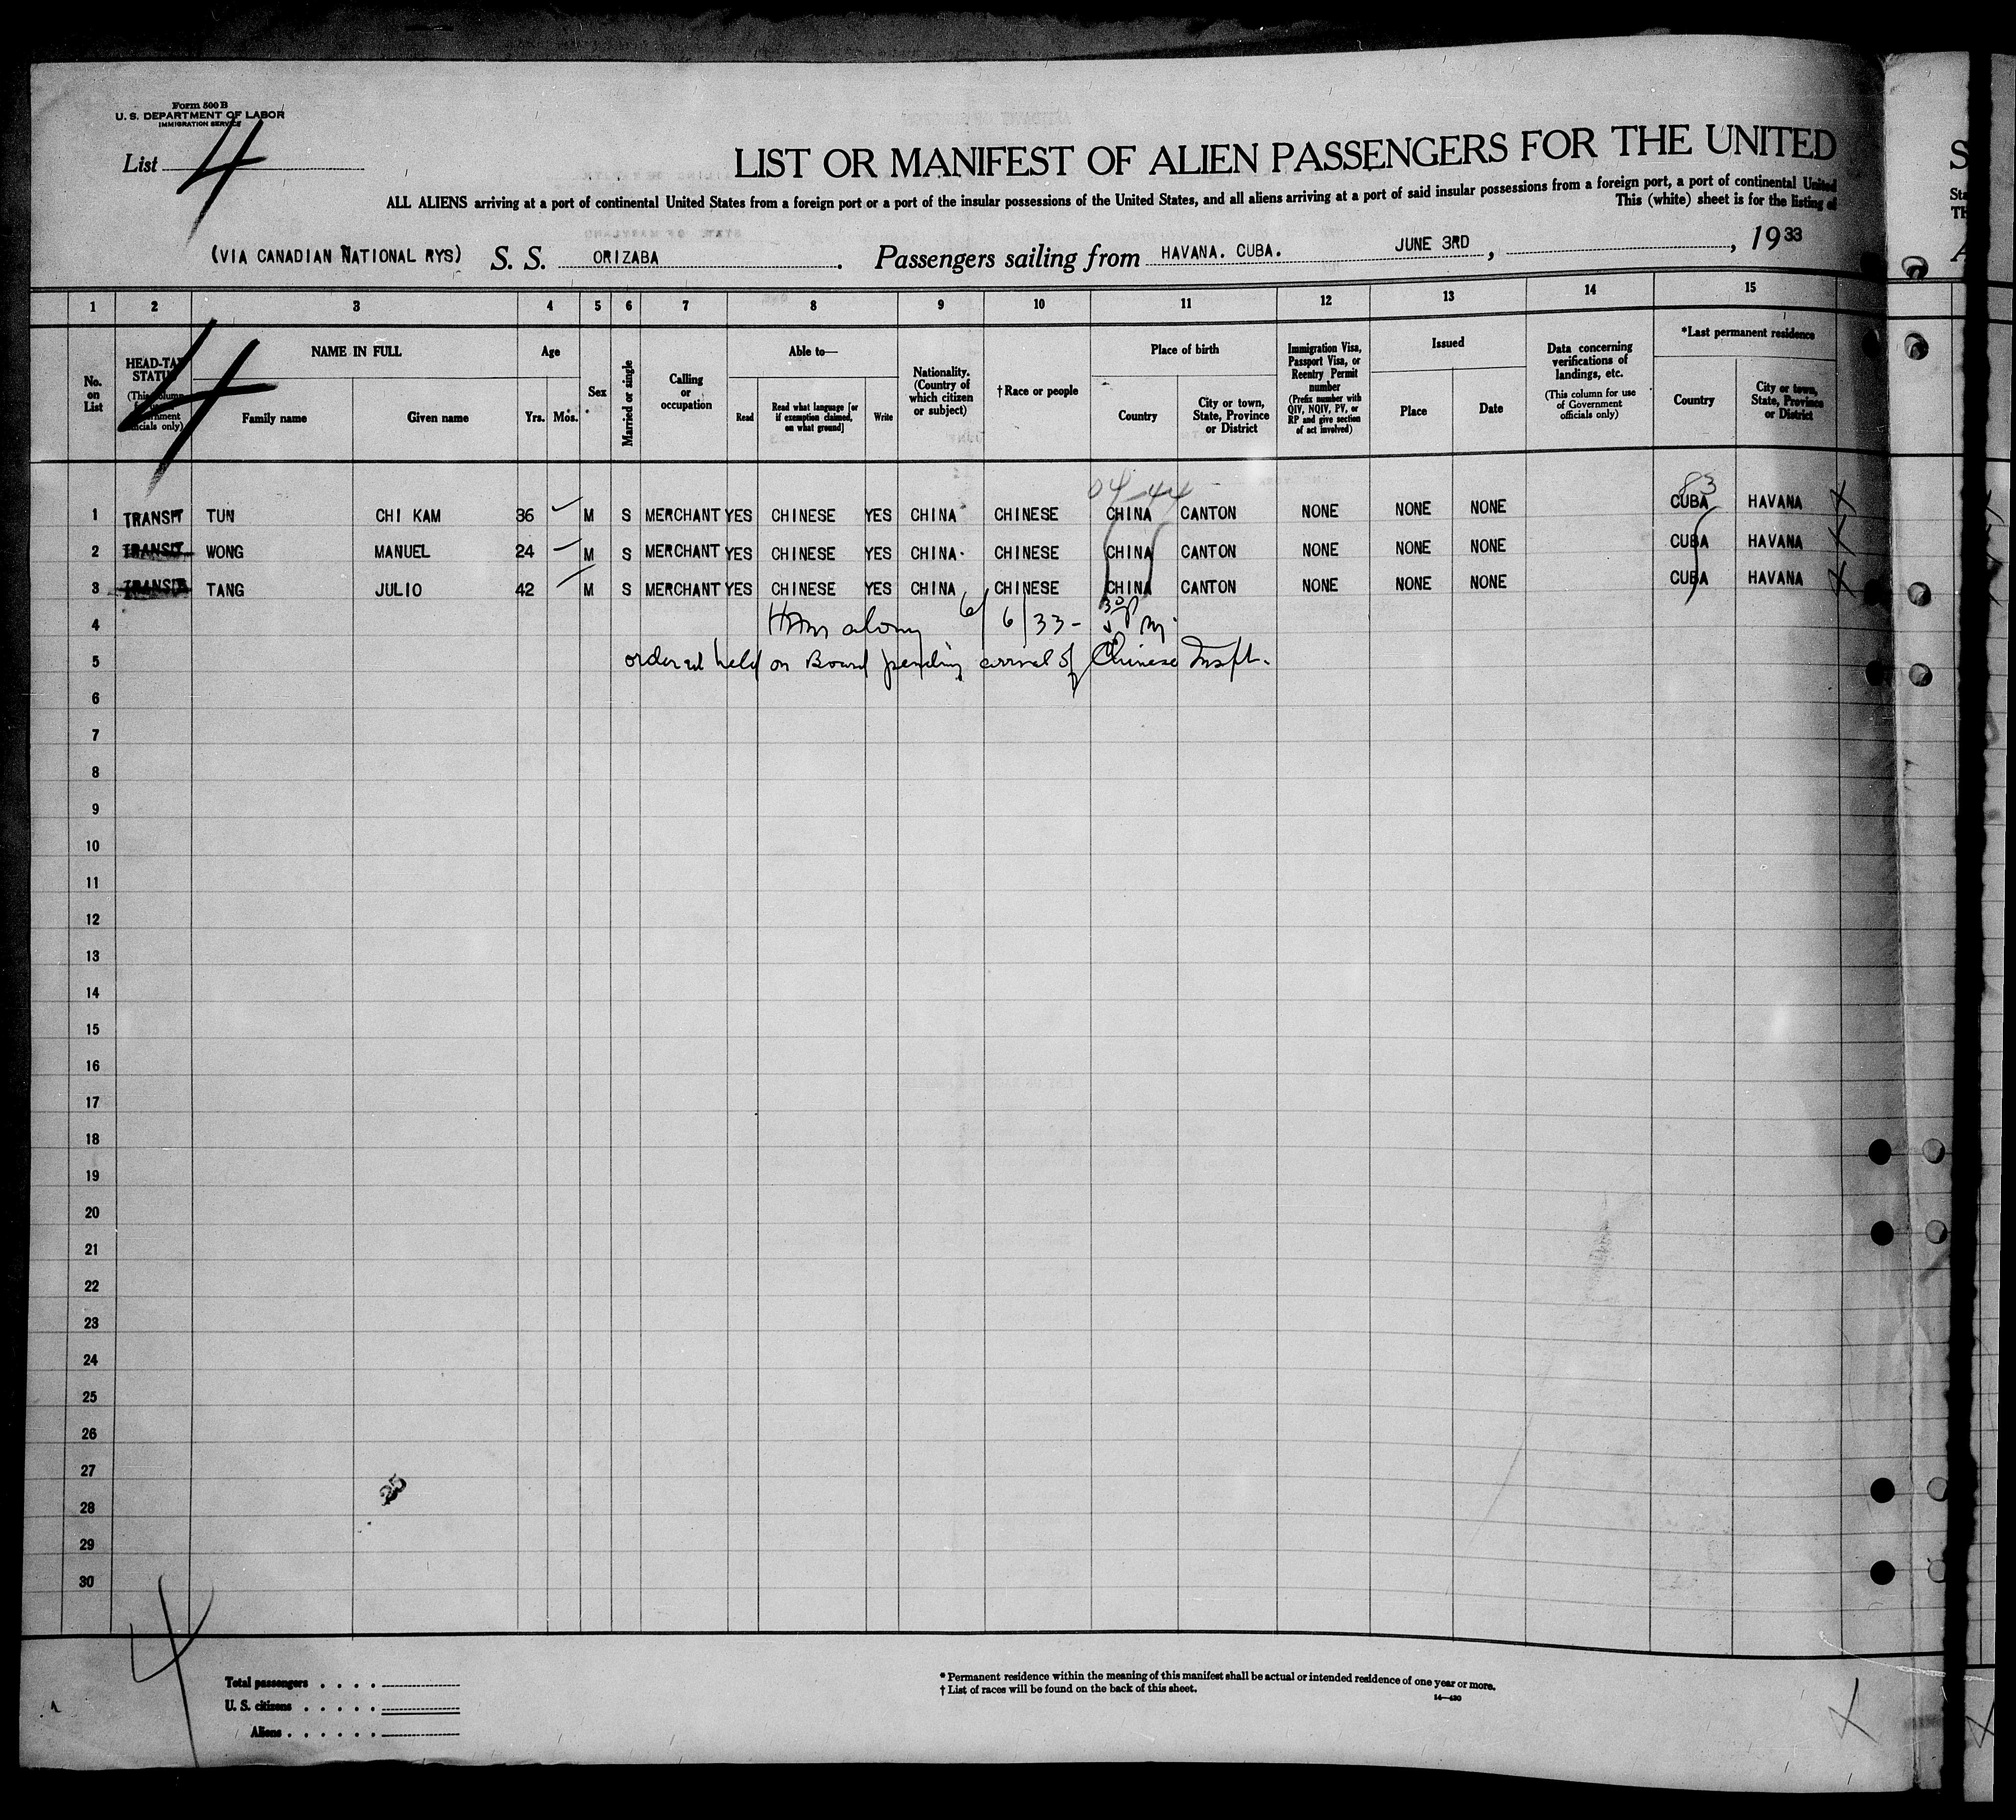 Form 500 B
U. S. DEPARTMENT OF LABOR
IMMIGRATION SERVICE
List 4
LIST OR MANIFEST OF ALIEN PASSENGERS FOR THE UNITED
ALL ALIENS arriving at a port of continental United States from a foreign port or a port of the insular possessions of the United States, and all aliens arriving at a port of said insular possessions from a foreign port, a port of continental United
This (white) sheet is for the listing of
(VIA CANADIAN NATIONAL RYS) S. S. ORIZABA. Passengers sailing from HAVANA. CUBA. JUNE 3RD, , 1933
1 2 3 4 5 6 7 8 9 10 11 12 13 14 15
No. on List
HEAD-TAX STATUS
4
NAME IN FULL
Family name Given name
Age
Yrs. Mos.
Sex
Married or single
Calling or occupation
Able to—
Read
Read what language [or if exemption claimed, on what ground]
Write
Nationality. (Country of which citizen or subject)
† Race or people
Place of birth
Country
City or town, State, Province or District
Immigration Visa, Passport Visa, or Reentry Permit number
(Prefix number with QIV, NQIV, PV, or RP and give section of act involved)
Issued
Place Date
Data concerning verifications of landings, etc.
(This column for use of Government officials only)
*Last permanent residence
Country
City or town, State, Province or District
04-44 83
1 TRANSIT TUN CHI KAM 36 M S MERCHANT YES CHINESE YES CHINA CHINESE CHINA CANTON NONE NONE NONE CUBA HAVANA
2 TRANSIT WONG MANUEL 24 M S MERCHANT YES CHINESE YES CHINA. CHINESE CHINA CANTON NONE NONE NONE CUBA HAVANA
3 TRANSIT TANG JULIO 42 M S MERCHANT YES CHINESE YES CHINA CHINESE CHINA CANTON NONE NONE NONE CUBA HAVANA
4 6/6/33-
5 ordered held on Board pending arrival of Chinese Inspt.
6
7
8
9
10
11
12
13
14
15
16
17
18
19
20
21
22
23
24
25
26
27
28
29
30
4
Total passengers . . . .
U. S. citizens . . . . .
Aliens . . . . . .
* Permanent residence within the meaning of this manifest shall be actual or intended residence of one year or more.
† List of races will be found on the back of this sheet.
14—430